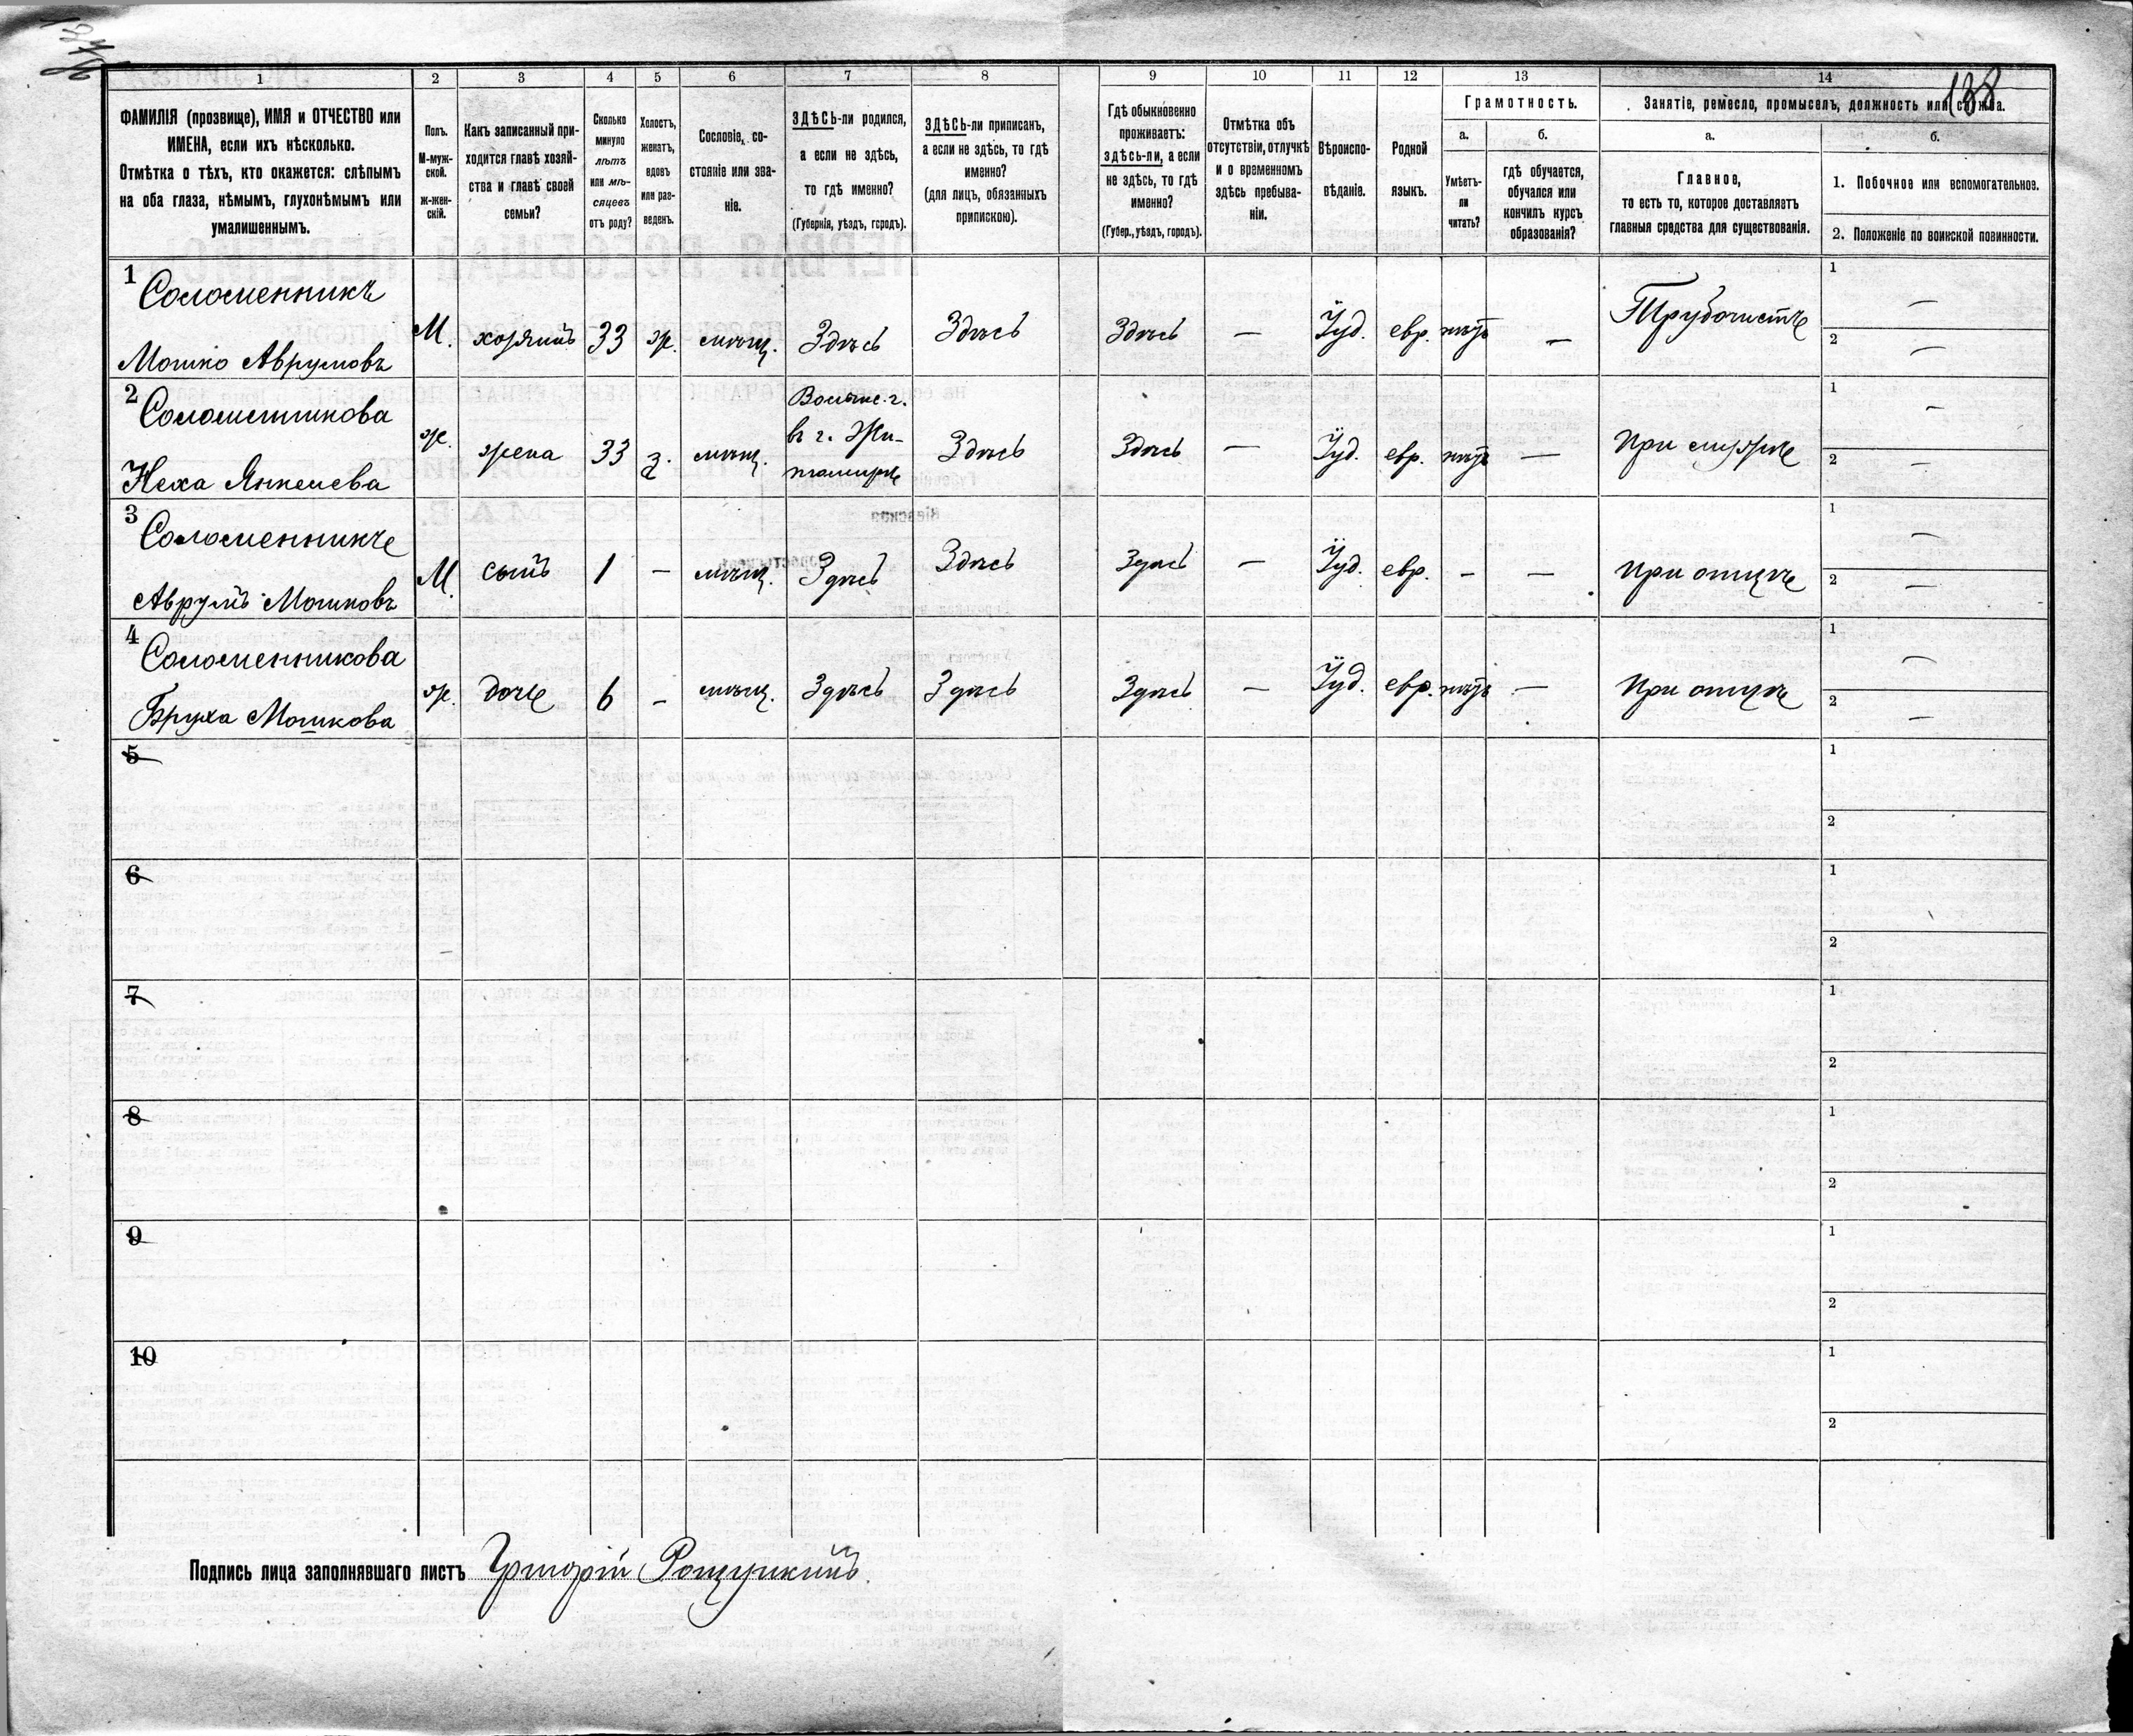 138
1 2 3 4 5 6 7 8 9 10 11 12 13 14
ФАМИЛІЯ (прозвище), ИМЯ и ОТЧЕСТВО или
ИМЕНА, если ихъ нѣсколько.
Отмѣтка о тѣхъ, кто окажется: слѣпымъ
на оба глаза, нѣмымъ, глухонѣмымъ или
умалишеннымъ.
Полъ.
М-муж-
ской.
ж-жен-
скій.
Какъ записанный при-
ходится главѣ хозяй-
ства и главѣ своей
семьи?
Сколько
минуло
лѣтъ
или мѣ-
сяцевъ
отъ роду?
Холостъ,
женатъ,
вдовъ
или раз-
веденъ.
Сословіе, со-
стояніе или зва-
ніе.
ЗДѢСЬ-ли родился,
а если не здѣсь,
то гдѣ именно?
(Губернія, уѣздъ, городъ).
ЗДѢСЬ-ли приписанъ,
а если не здѣсь, то гдѣ
именно?
(для лицъ, обязанныхъ
припискою).
Гдѣ обыкновенно
проживаетъ:
здѣсь-ли, а если
не здѣсь, то гдѣ
именно?
(Губер., уѣздъ, городъ).
Отмѣтка объ
отсутствіи, отлучкѣ
и о временномъ
здѣсь пребыва-
ніи.
Вѣроиспо-
вѣданіе.
Родной
языкъ.
Грамотность.
а.
Умѣетъ-
ли
читать?
б.
гдѣ обучается,
обучался или
кончилъ курсъ
образованія?
Занятіе, ремесло, промыселъ, должность или служба.
а.
Главное,
то есть то, которое доставляетъ
главныя средства для существованія.
б.
1. Побочное или вспомогательное.
2. Положеніе по воинской повинности.
1 Соломенникъ
Мошко Аврумовъ
М. хозяинъ 33 ж. мѣщ. Здѣсь Здѣсь Здѣсь — Іуд. евр. нѣтъ — Трубочистъ 1 — 2 —
2 Соломенникова
Неха Янкелева
ж. жена 33 з. мѣщ.
Волынс. г.
въ г. Жи-
томирѣ
Здѣсь Здѣсь — Іуд. евр. нѣтъ — При мужѣ 1 — 2 —
3 Соломенникъ
Аврумъ Мошковъ
М. сынъ 1 — мѣщ. Здѣсь Здѣсь Здѣсь — Іуд. евр. — — При отцѣ 1 — 2 —
4 Соломенникова
Бруха Мошкова
ж. дочь 6 — мѣщ. Здѣсь Здѣсь Здѣсь — Іуд. евр. нѣтъ — При отцѣ 1 — 2 —
5 1
2
6 1
2
7 1
2
8 1
2
9 1
2
10 1
2
Подпись лица заполнявшаго листъ Григорій